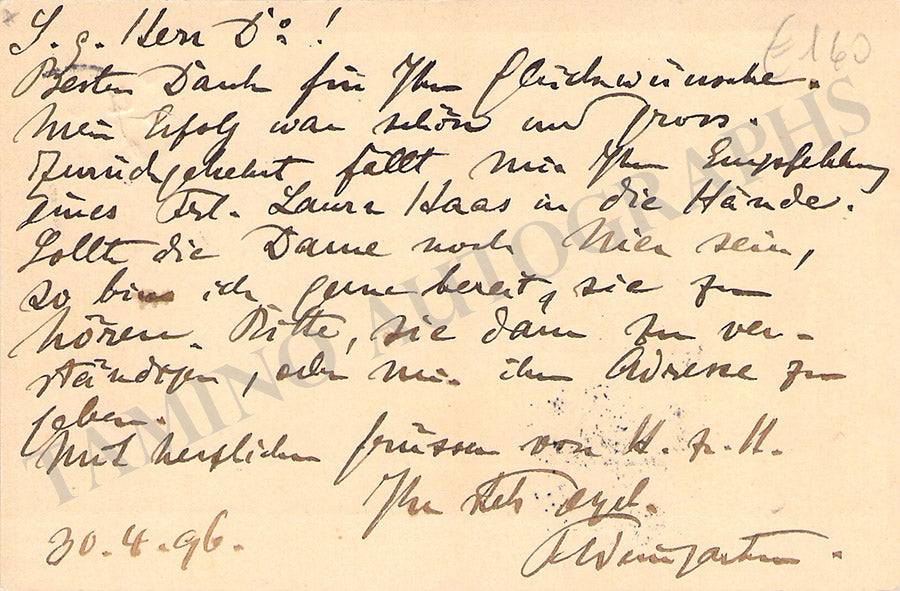 S. g. Herr Dr !
€160
Besten Dank für Ihre Glückwünsche.
Mein Erfolg war schön und gross.
Zurückgekehrt fällt mir Ihre Empfehlung
eines Frl. Laura Haas in die Hände.
Sollte die Dame noch hier sein,
so bin ich gerne bereit, sie zu
hören. Bitte, sie dann zu ver-
ständigen, oder mir ihre Adresse zu
geben.
Mit herzlichen Grüssen von H. z. H.
Ihr stets ergeb.
FWeingartner.
30.4.96.
TAMINO AUTOGRAPHS